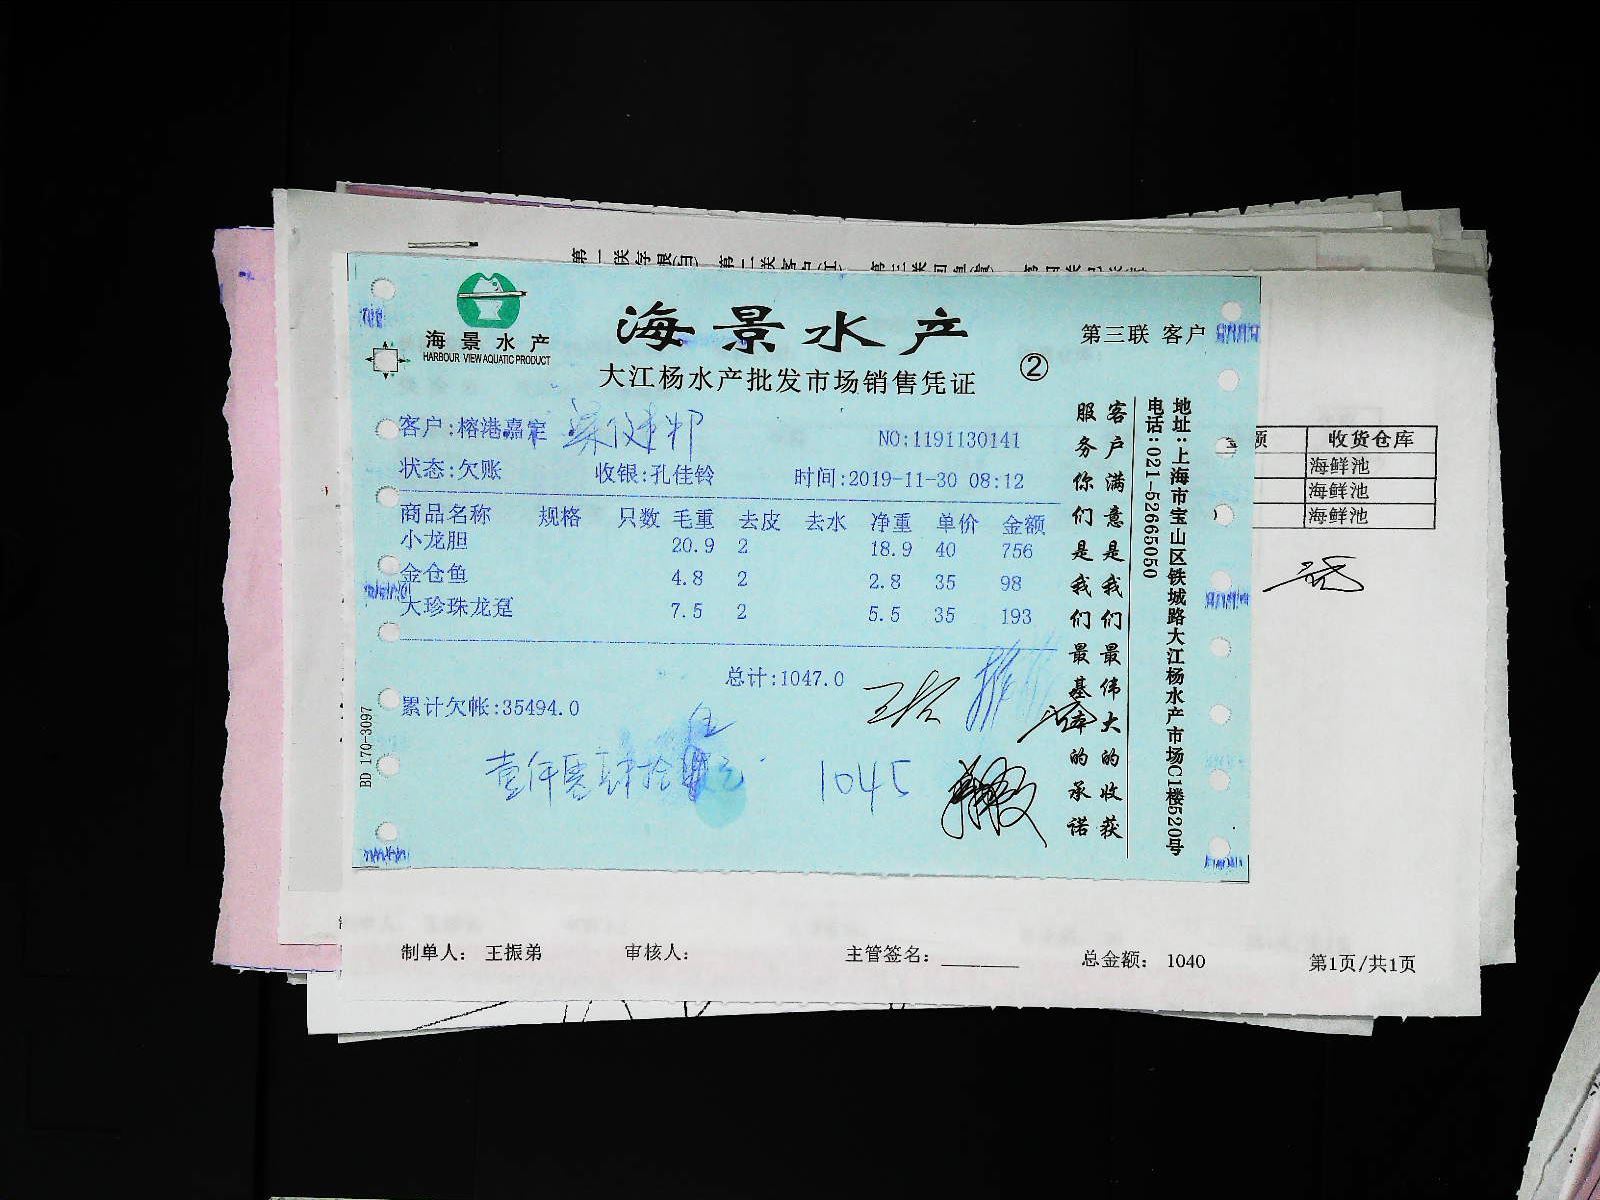 海景水产
HARBOUR VIEW AQUATIC PRODUCT
海景水产
第三联 客户
大江杨水产批发市场销售凭证
②
客户:榕港嘉定
NO:1191130141
状态:欠账 收银:孔佳铃 时间:2019-11-30 08:12
商品名称 规格 只数 毛重 去皮 去水 净重 单价 金额
小龙胆 20.9 2 18.9 40 756
金仓鱼 4.8 2 2.8 35 98
大珍珠龙趸 7.5 2 5.5 35 193
总计:1047.0
累计欠帐:35494.0
壹仟零肆拾伍元
1045
BD 170-3097
客户满意是我们最伟大的收获
服务你们是我们最基本的承诺
地址:上海市宝山区铁城路大江杨水产市场C1楼520号
电话:021-52665050
额 收货仓库
海鲜池
海鲜池
海鲜池
制单人: 王振弟 审核人: 主管签名: 总金额: 1040 第1页/共1页